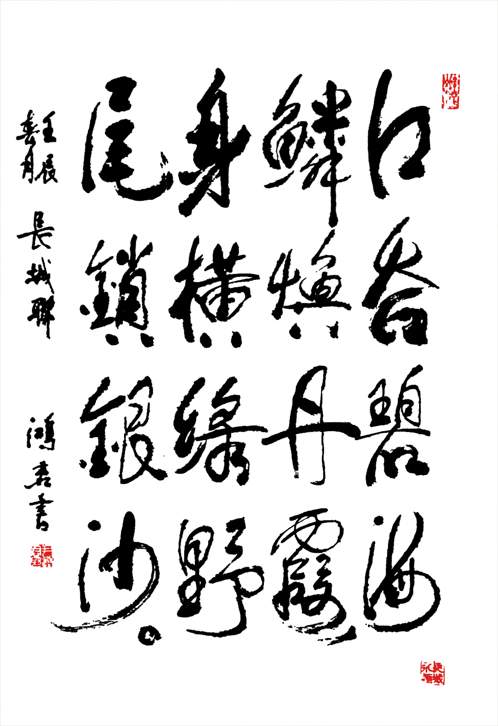 口吞碧海
鱗煥丹霞
身橫綠野
尾鎖銀沙
壬辰
春月
長城聯 鴻書